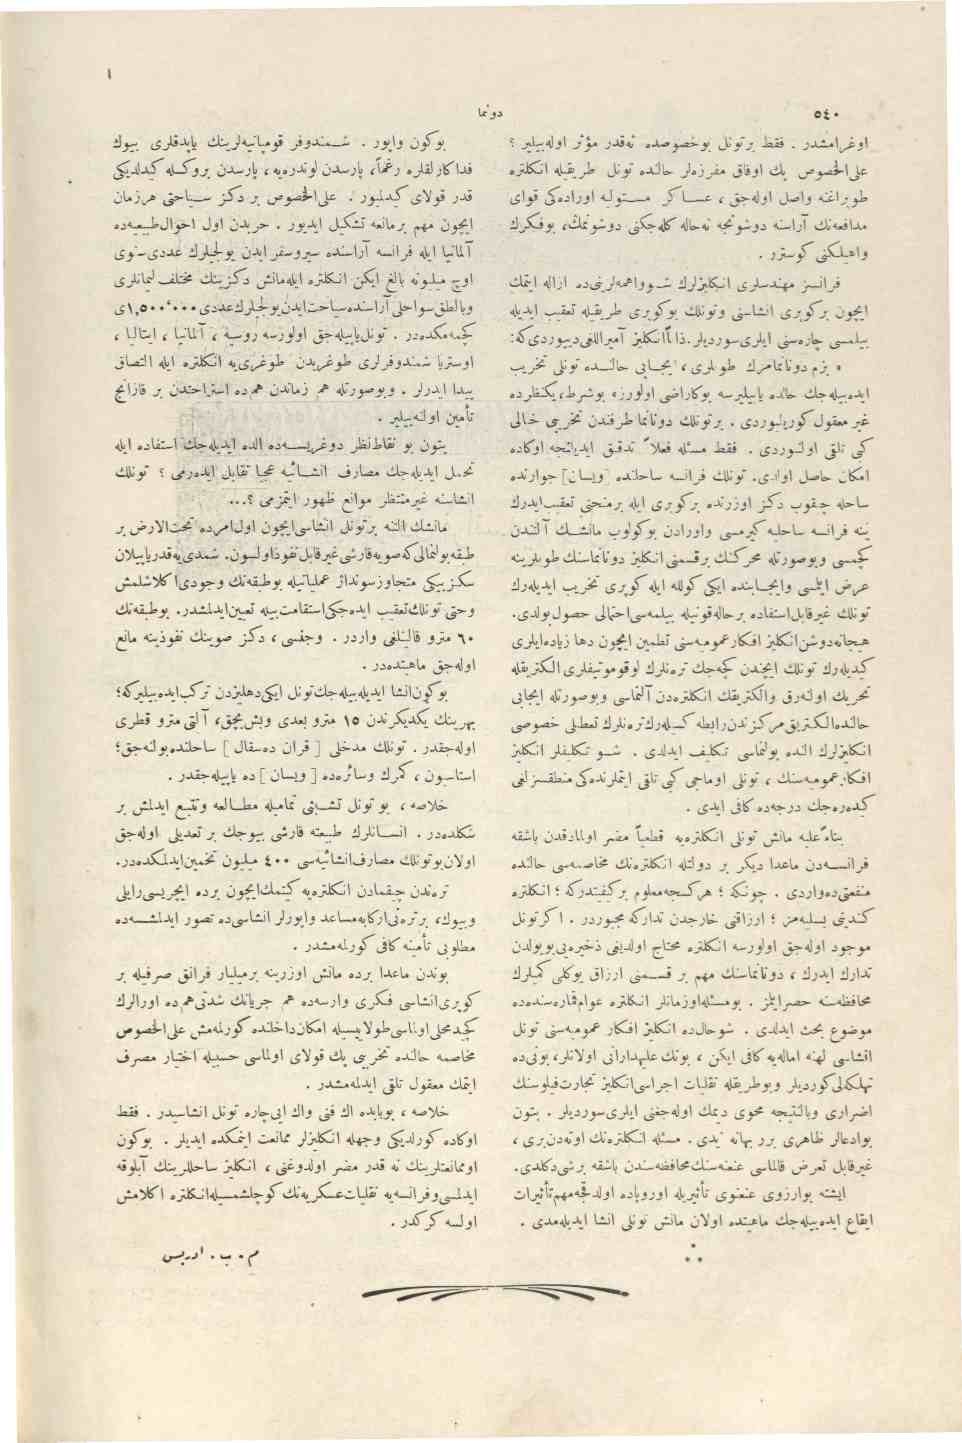 ٥٤٠
دونما
اوغرامشدر . فقط برتونل بوخصوصده نه‌قدر مؤثر اوله‌بیلیر ؟
علی‌الخصوص پك اوفاق مفرزه‌لر حالنده تونل طریقیله انكلتره
طوپراغنه واصل اوله‌جق ، عساكر مستولیه اوراده‌كی قوای
مدافعه‌نك آراسنه دوشونجه نه‌حاله كله‌جكنی دوشونمك، بوفكرك
واهیلكنی كوسترر .
فرانسز مهندسلری انكلیزلرك شو واهمه‌لرینی‌ده ازاله ایتمك
ایچون بركوپری انشاسنی وتونلك بوكوپری طریقیله تعقیب ایدیله
بیلمسی چاره‌سنی ایلری‌سوردیلر. ذاتاً انكلیز آمیراللغی دییوردی‌كه:
« بزم دونانمامزك طوپلری ، ایجابی حالنده تونلی تخریب
ایده‌بیله‌جك حالده یاپیلیرسه بوكاراضی اولورز» بوشرط، یكنظرده
غیر معقول كوریلیوردی . برتونلك دونانما طرفندن تخریبی خیالی
كبی تلقی اولنیوردی . فقط مسئله فعلاً تدقیق ایدیلنجه اوكاده
امكان حاصل اولدی. تونلك فرانسه ساحلنده [ویسان] جوارنده
ساحله چیقوب دكز اوزرنده بركوپری ایله برمنحنی تعقیب‌ایدرك
ینه فرانسه ساحلیه كیرمسی واورادن بوكولوب مانشك آلتندن
كچمسی وبوصورتله محركنك برقسمنی انكلیز دونانماسنك طوپلرینه
عرض ایتمسی وایجابنده ایكی كولله ایله كوپری تخریب ایدیله‌رك
تونلك غیرقابل‌استفاده برحاله‌قونیله بیلمه‌سی احتمالی حصول‌بولدی.
هیجانه‌دوشن‌انكلیز افكارعمومیه‌سنی تطمین ایچون دها زیاده‌ایلری
كیدیله‌رك تونلك ایچندن كچه‌جك ترنلرك لوقوموتیفلری الكتریقله
تحریك اولنه‌رق والكتریقك انكلتره‌دن آلنماسی وبوصورتله ایجابی
حالنده‌الكتریق‌مركزندن‌رابطه كسیله‌رك‌ترنلرك تعطیلی خصوصی
انكلیزلرك النده بولنماسی تكلیف ایدلدی . شو تكلیفلر انكلیز
افكارعمومیه‌سنك ، تونلی اوماجی كبی تلقی ایتملرنده‌كی منطقسزلغی
كیدره‌جك درجه‌ده كافی ایدی .
بناءً‌علیه مانش تونلی انكلتره‌یه قطعیاً مضر اولمادقدن باشقه
فرانسه‌دن ماعدا دیكر بر دولتله انكلتره‌نك مخاصمه‌سی حالنده
منفعتی‌ده‌واردی . چونكه ؛ هركسجه‌معلوم بركیفیتدركه ؛ انكلتره
كندینی بسلیه‌مز ؛ ارزاقنی خارجدن تداركه مجبوردر . اكر تونل
موجود اوله‌جق اولورسه انكلتره محتاج اولدیغی ذخیره‌یی بویولدن
تدارك ایدرك ، دونانماسنك مهم بر قسمنی ارزاق یوكلی كمیلرك
محافظه‌سنه حصرایتمز . بومسئله‌اوزمانلر انكلتره عوام‌قماره‌سنده‌ده
موضوع بحث ایدلدی . شوحالده انكلیز افكار عمومیه‌سنی تونل
انشاسی لهنه اماله‌یه كافی ایكن ، بونك علیهدارانی اولانلر، بونی‌ده
تهلكه‌لی‌كوردیلر وبوطریقله نقلیات اجراسی‌انكلیز تجارت‌فیلوسنك
اضراری وبالنتیجه محوی دیمك اوله‌جغنی ایلری‌سوردیلر . بتون
بوادعالر ظاهری برر بهانه ایدی . مسئله انكلتره‌نك اوته‌دن‌بری ،
غیرقابل تعرض قالماسی عنعنه‌سنك‌محافظه‌سندن باشقه برشی‌دكلدی.
ایشته بوآرزوی عنعنوی تأثیریله اوروپاده اولدقجه‌مهم‌تأثیرات
ایقاع ایده‌بیله‌جك ماهیتده اولان مانش تونلی انشا ایدیله‌مدی .
بوكون واپور . شمندوفر قومپانیه‌لرینك یاپدقلری بیوك
فداكارلقلره رغماً، پارسدن لوندره‌یه ، پارسدن بروكسله كیدلدیكی
قدر قولای كیدلمیور . علی‌الخصوص بر دكز سیاحتی هرزمان
ایچون مهم برمانعه تشكیل ایدیور . حربدن اول احوال‌طبیعیه‌ده
آلمانیا ایله فرانسه آراسنده سیروسفر ایدن یولجیلرك عددی‌سنوی
اوچ میلیونه بالغ ایكن انكلتره ایله‌مانش دكزینك مختلف‌لیمانلری
وبالطق‌سواحلی آراسنده‌سیاحت‌ایدن‌یولجیلرك‌عددی١,٥٠٠،٠٠٠ی
كچمه‌مكده‌در . تونل‌یاپیله‌جق اولورسه روسیه ، آلمانیا ، ایتالیا ،
اوستریا شمندوفرلری طوغریدن طوغری‌یه انكلتره ایله التصاق
پیدا ایدرلر . وبوصورتله هم زماندن هم‌ده استراحتدن بر قازانج
تأمین اولنه‌بیلیر .
بتون بو نقاط‌نظر دوغریسه‌ده الده ایدیله‌جك استفاده ایله
تحمل ایدیله‌جك مصارف انشائیه عجبا تقابل ایده‌رمی ؟ تونلك
انشاسنه غیرمنتظر موانع ظهور ایتمزمی ؟...
مانشك التنه برتونل انشاسی‌ایچون اول‌امرده تحت‌الارض بر
طبقه‌بولنمالی‌كه‌صویه‌قارشی‌غیرقابل‌نفوذاولسون. شمدی‌یه‌قدریاپیلان
سكزبیكی متجاوزسونداژ عملیاتیله بوطبقه‌نك وجودی‌اكلاشلمش
وحتی تونلك‌تعقیب ایده‌جكی‌استقامت‌بیله تعیین‌ایدلمشدر. بوطبقه‌نك
٦٠ مترو قالینلغی واردر . وجنسی ، دكز صوینك نفوذینه مانع
اوله‌جق ماهیتده‌در .
بوكون‌انشا ایدیله‌بیله‌جك‌تونل ایكی‌دهلیزدن تركب‌ایده‌بیلیركه؛
بهرینك یكدیكرندن ١٥ مترو بعدی وبش‌بچق، آلتی‌مترو قطری
اوله‌جقدر. تونلك مدخلی [ قران ده‌سقال ] ساحلنده‌بولنه‌جق؛
استاسیون ، كمرك وسائره‌ده [ ویسان ] ده یاپیله‌جقدر .
خلاصه ، بو تونل تشبثی تمامیله مطالعه وتتبع ایدلمش بر
شكلده‌در. انسانلرك طبیعته قارشی بیوجك بر تعدیلی اوله‌جق
اولان‌بوتونلك مصارف‌انشائیه‌سی ٤٠٠ میلیون تخمین‌ایدلمكده‌در.
ترندن چیقمادن انكلتره‌یه كیتمك‌ایچون برده ایچریسی‌رایلی
وبیوك، برترنی‌اركابه‌مساعد واپورلر انشاسی‌ده تصور ایدلمشسه‌ده
مطلوبی تأمینه كافی كورلمه‌مشدر .
بوندن ماعدا برده مانش اوزرینه برمیلیار فرانق صرفیله بر
كوپری‌انشاسی فكری وارسه‌ده هم جریانك شدتی‌هم‌ده اورالرك
كچیدمحلی اولماسی‌طولاییسیله امكان‌داخلنده كورلمه‌مش علی‌الخصوص
مخاصمه حالنده تخریبی پك قولای اولماسی حسبیله اختیار مصرف
ایتمك معقول تلقی ایدلمه‌مشدر .
خلاصه ، بوبابده اك فنی واك ایی‌چاره تونل انشاسیدر . فقط
اوكاده كورلدیكی وجهله انكلیزلر ممانعت ایتمكده ایدیلر . بوكون
اوممانعتلرینك نه قدر مضر اولدوغنی ، انكلیز ساحللرینك آبلوقه
ایدلمسی‌وفرانسه‌یه نقلیات‌عسكریه‌نك كوچلشمسیله‌انكلتره اكلامش
اولسه كركدر .
م . ب . ادریس